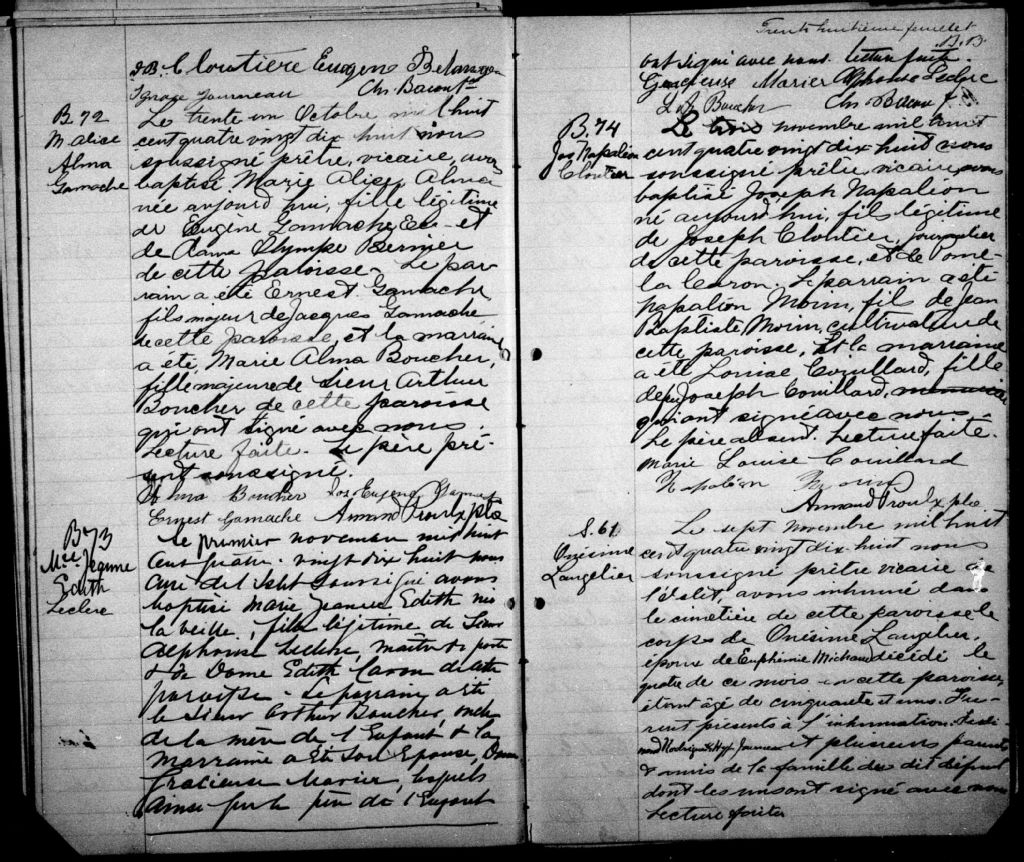 J.B. Cloutière Eugène Belanger
Ignace Journeau Chs Bacon Ptre
B. 72
M alice
Alma
Gamache
Le trente un Octobre mil huit
cent quatre vingt dix huit nous
soussigné prêtre, vicaire, avons
baptisé Marie Alice, Alma
née aujourd'hui, fille légitime
de Eugène Gamache, et
de Dame Olympe Bernier
de cette paroisse. Le par-
rain a été Ernest Gamache,
fils majeur de Jacques Gamache
de cette paroisse, et la marraine
a été, Marie Alma Boucher,
fille majeure de Sieur Arthur
Boucher de cette paroisse
qui ont signé avec nous.
Lecture faite. Le père pré-
sent soussigné.
Alma Boucher Jos Eugène Gamache
Ernest Gamache Armand Proulx ptre
B 73
Mie Jeanne
Edith
Leclerc
Le premier novembre mil huit
cent quatre-vingt dix huit nous
curé de l'Islet soussigné avons
baptisé Marie Jeanne Edith née
la veille, fille légitime de Sieur
Alphonse Leclerc, maître de poste
& de Dame Edith Caron de cette
paroisse. Le parrain a été
le Sieur Arthur Boucher, oncle
de la mère de l'Enfant & la
marraine a été son Epouse, Dame
Gracieuse Marier, lesquels
ainsi que le père de l'Enfant
Trente huitième feuillet
B.B.
ont signé avec nous. lecture faite.
Gracieuse Marier Alphonse Leclerc
Boucher Chs Bacon
B. 74
Jos Napoléon
Cloutier
Le trois novembre mil huit
cent quatre vingt dix huit nous
soussigné prêtre, vicaire, avons
baptisé Joseph Napoléon
né aujourd'hui, fils légitime
de Joseph Cloutier, journalier
de cette paroisse, et de Pomé-
la Caron. Le parrain a été
Napoléon Morin, fils de Jean
Baptiste Morin, cultivateur de
cette paroisse, Et la marraine
a été Louise Couillard, fille
de Joseph Couillard,
qui ont signé avec nous.
Le père absent. Lecture faite.
Marie Louise Couillard
Napoléon Morin
Armand Proulx ptre
S. 61
Onésime
Langelier
Le sept novembre mil huit
cent quatre vingt dix-huit nous
soussigné prêtre vicaire de
l'Islet, avons inhumé dans
le cimetière de cette paroisse le
corps de Onésime Langelier,
époux de Euphémie Michaud décédé le
quatre de ce mois en cette paroisse,
étant âgé de cinquante et un ans. Fu-
rent présents à l'inhumation. Ferdi-
nand Rodrigue & Hyp. Journeau et plusieurs parents
& amis de la famille du dit défunt
dont les uns ont signé avec nous
Lecture faite